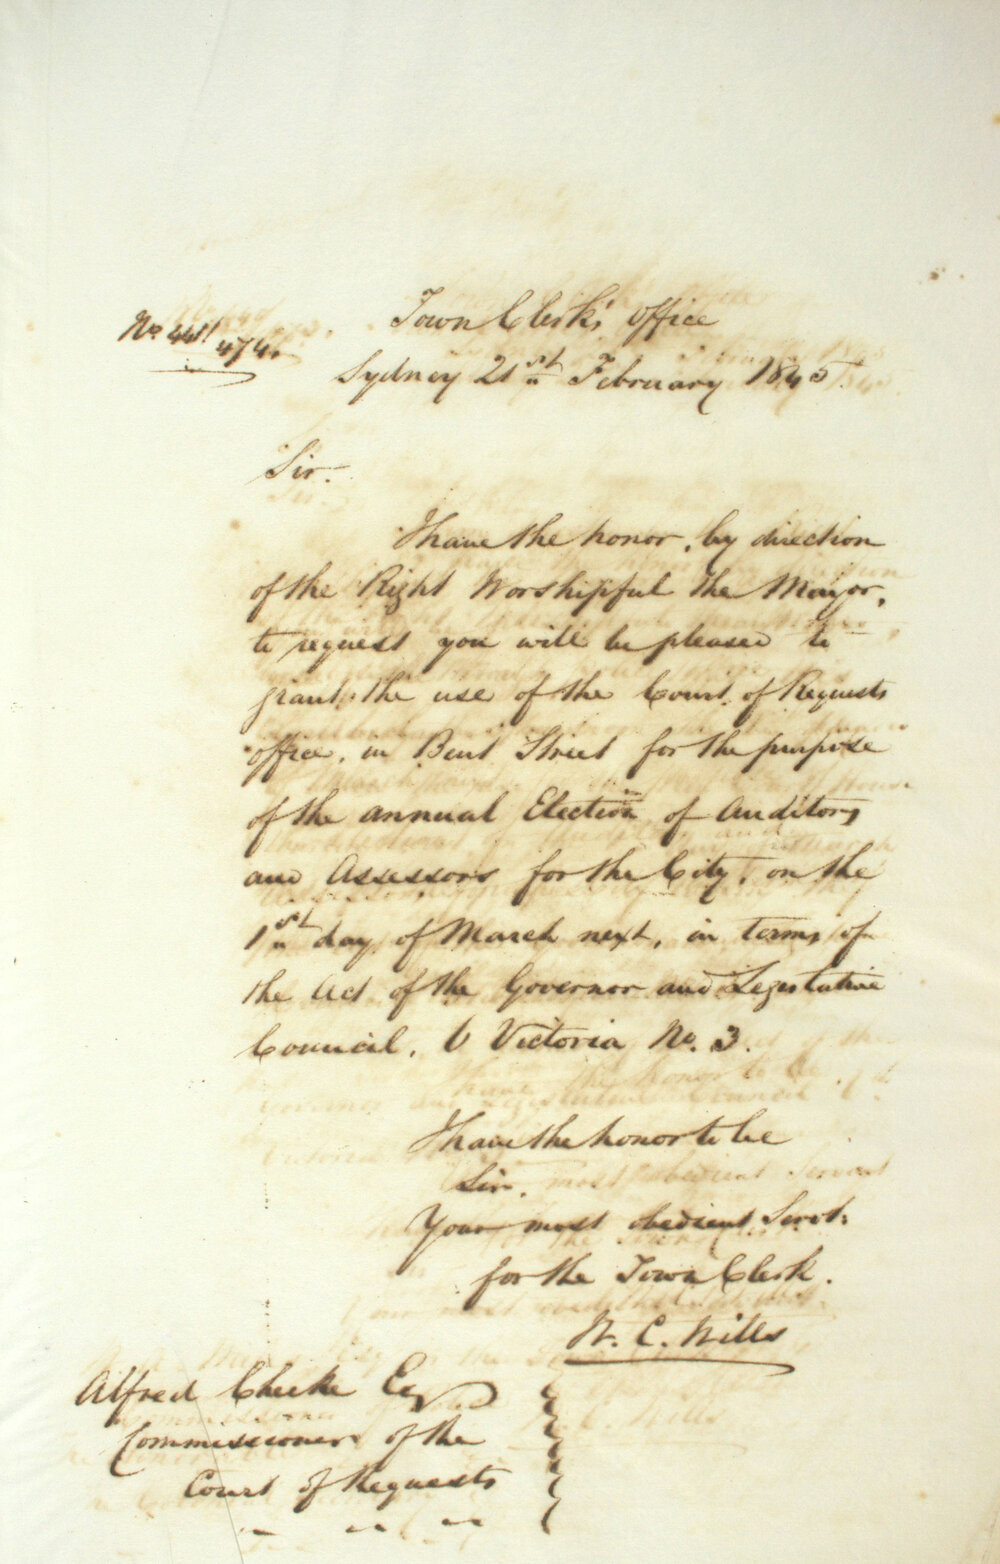 Town Clerk's Office
No 441/474.
Sydney 21st February 1845.
Sir.
I have the honor, by direction
of the Right Worshipful the Mayor,
to request you will be pleased to
grant the use of the Court of Requests
office, in Bent Street for the purpose
of the annual Election of Auditors
and Assessors for the City, on the
1st day of March next, in terms of
the Act of the Governor and Legislative
Council, 6 Victoria No. 3.
I have the honor to be
Sir,
Your most obedient Servt.
for the Town Clerk.
W. C. Wills
Alfred Cheeke Esq
Commissioner of the
Court of Requests